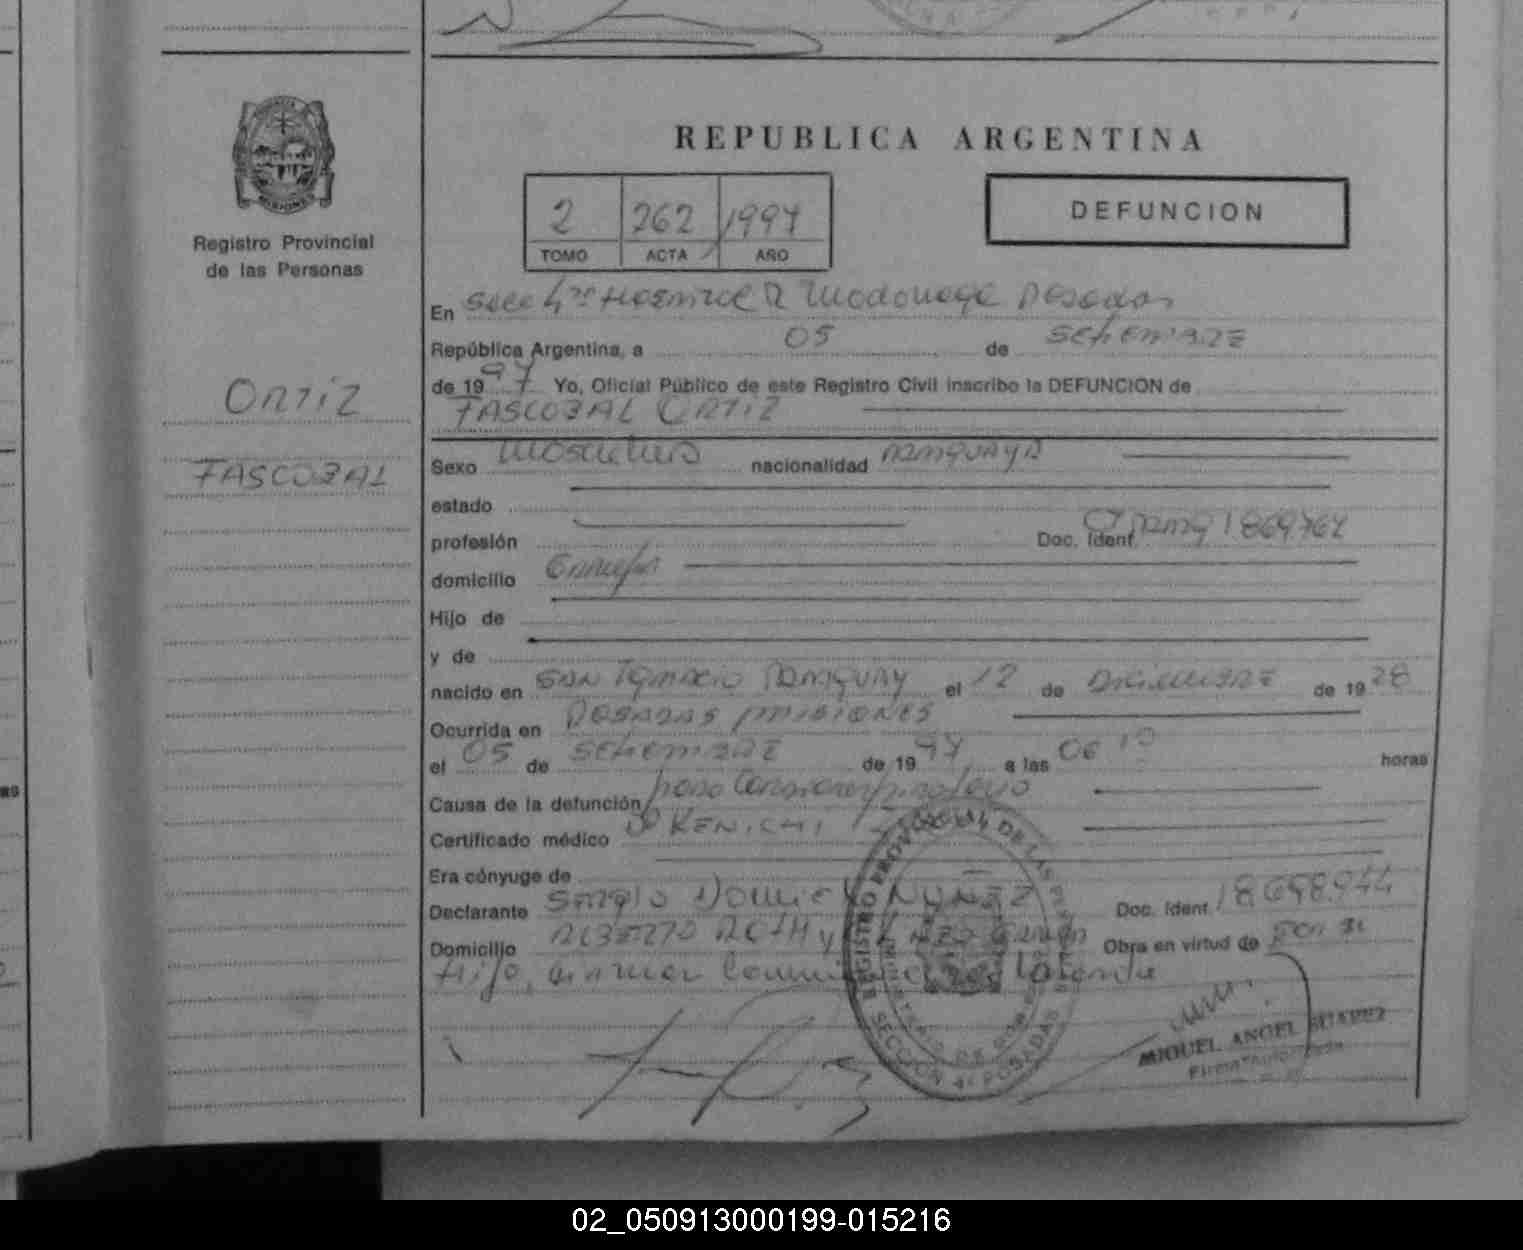 REPUBLICA ARGENTINA
2 262 1997
TOMO ACTA AÑO
DEFUNCION
Registro Provincial
de las Personas
ORTIZ
FASCOZAL
En Secc 4ta Hospital R Madariaga Posadas
República Argentina, a 05 de Setiembre
de 1997 Yo, Oficial Público de este Registro Civil inscribo la DEFUNCION de
FASCOZAL ORTIZ
Sexo Masculino nacionalidad Paraguaya
estado
profesión Doc. Ident.
domicilio
Hijo de
y de
nacido en San Ignacio Paraguay el 12 de Diciembre de 1928
Ocurrida en Posadas Misiones
el 05 de Setiembre de 1997, a las 06 horas
Causa de la defunción paro cardiorrespiratorio
Certificado médico Dr KENICHI
Era cónyuge de
Declarante Sergio NUÑEZ Doc. Ident.
Domicilio Alberto Roth y Obra en virtud de
Hijo,
REGISTRO PROVINCIAL DE LAS PERSONAS
SECCION 4ª POSADAS
MIGUEL ANGEL SUAREZ
Firma Autorizada
02_050913000199-015216